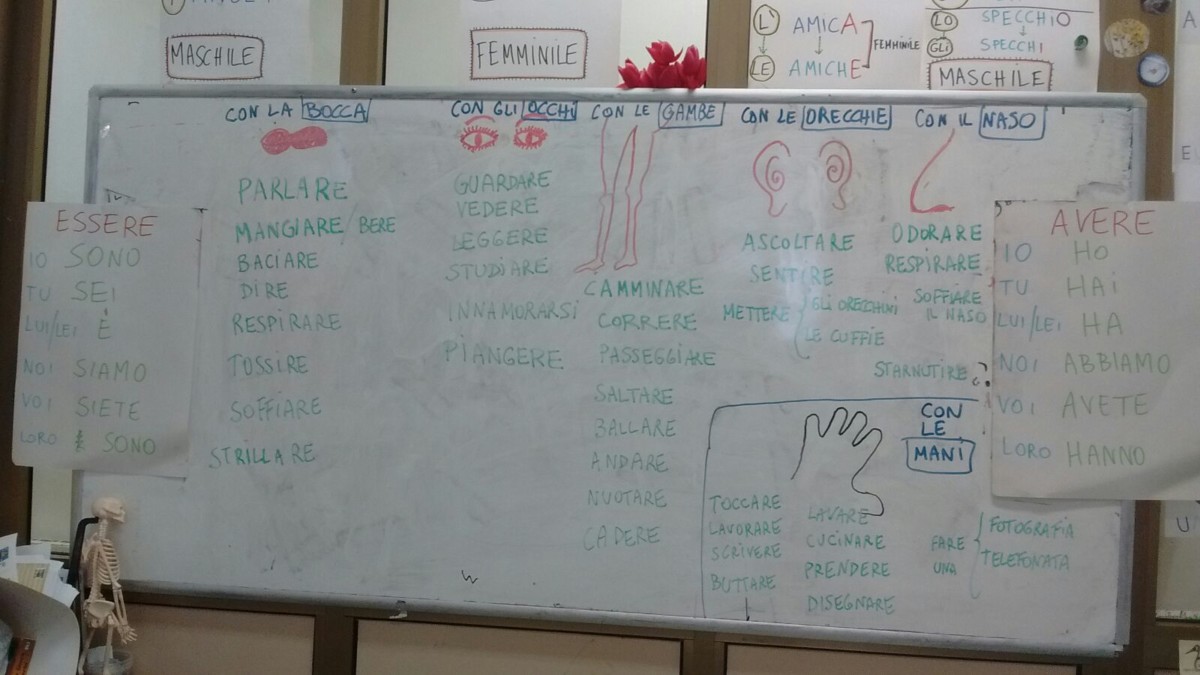 MASCHILE
FEMMINILE
L' AMICA
LE AMICHE
FEMMINILE
LO SPECCHIO
GLI SPECCHI
MASCHILE
CON LA BOCCA
PARLARE
MANGIARE / BERE
BACIARE
DIRE
RESPIRARE
TOSSIRE
SOFFIARE
STRILLARE
CON GLI OCCHI
GUARDARE
VEDERE
LEGGERE
STUDIARE
INNAMORARSI
PIANGERE
CON LE GAMBE
CAMMINARE
CORRERE
PASSEGGIARE
SALTARE
BALLARE
ANDARE
NUOTARE
CADERE
CON LE ORECCHIE
ASCOLTARE
SENTIRE
METTERE GLI ORECCHINI
LE CUFFIE
CON IL NASO
ODORARE
RESPIRARE
SOFFIARE
IL NASO
STARNUTIRE ?
CON
LE
MANI
TOCCARE
LAVORARE
SCRIVERE
BUTTARE
LAVARE
CUCINARE
PRENDERE
DISEGNARE
FARE
UNA
FOTOGRAFIA
TELEFONATA
ESSERE
IO SONO
TU SEI
LUI/LEI È
NOI SIAMO
VOI SIETE
LORO SONO
AVERE
IO HO
TU HAI
LUI/LEI HA
NOI ABBIAMO
VOI AVETE
LORO HANNO